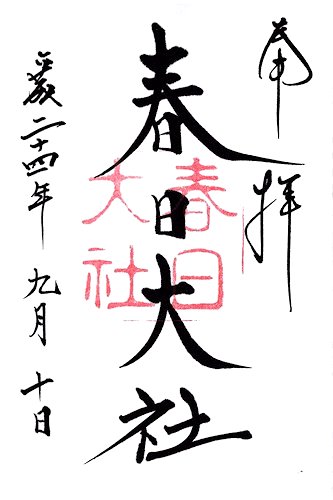 奉拝
春日大社
春日
大社
平成二十四年九月十日